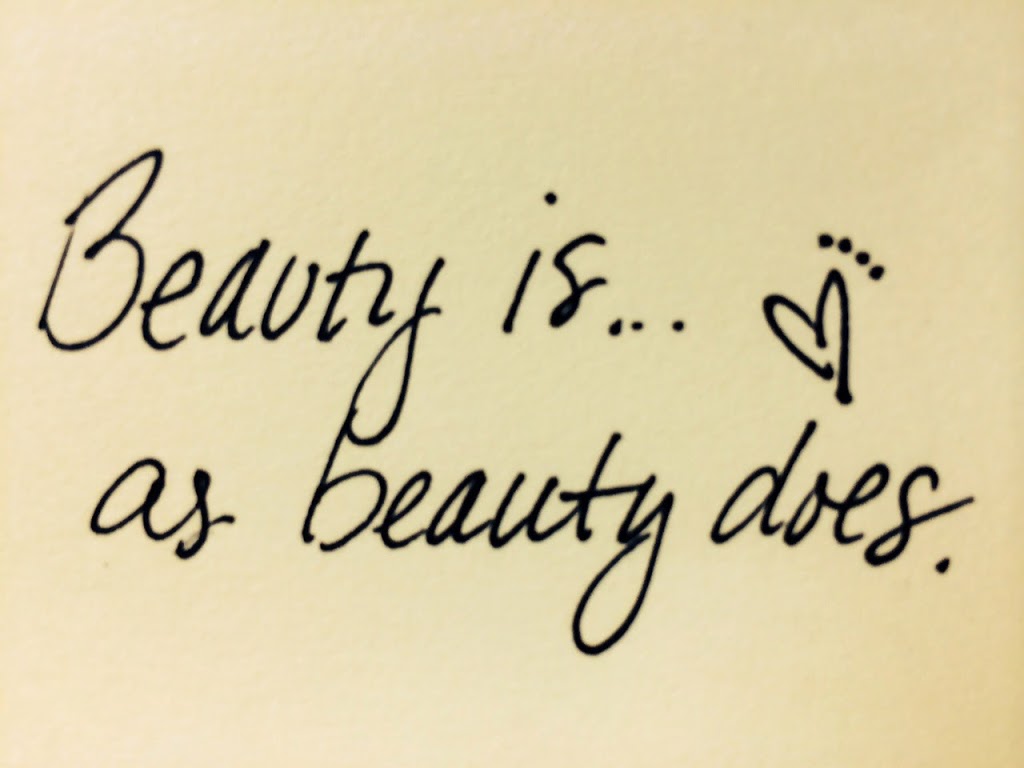 Beauty is...
as beauty does.